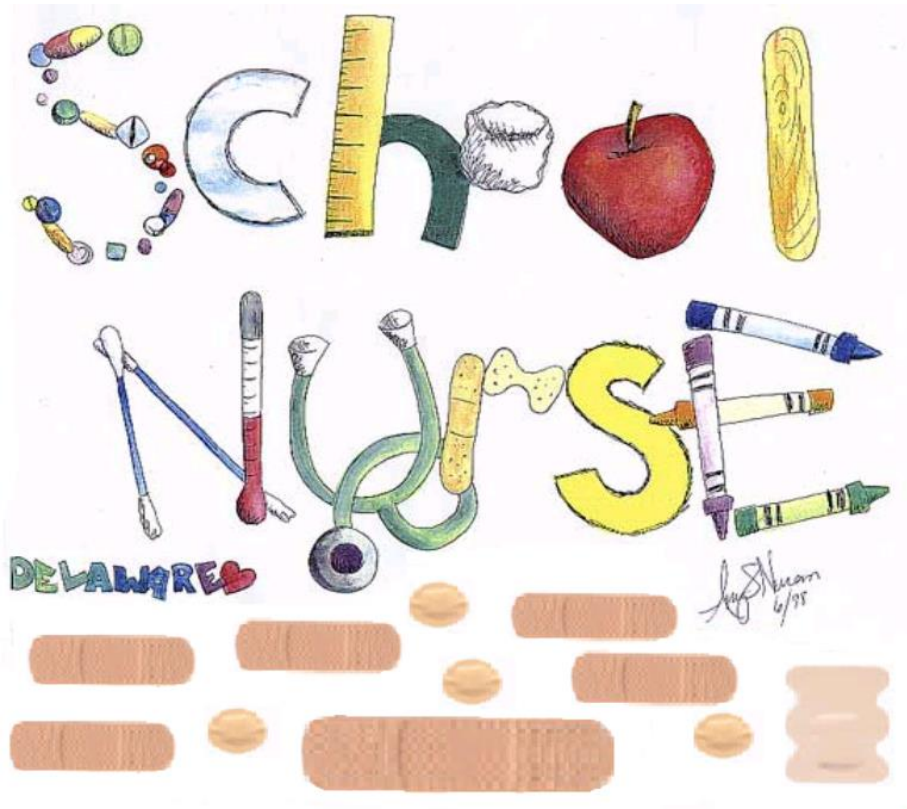 School
NursE
DELAWARE
6/98